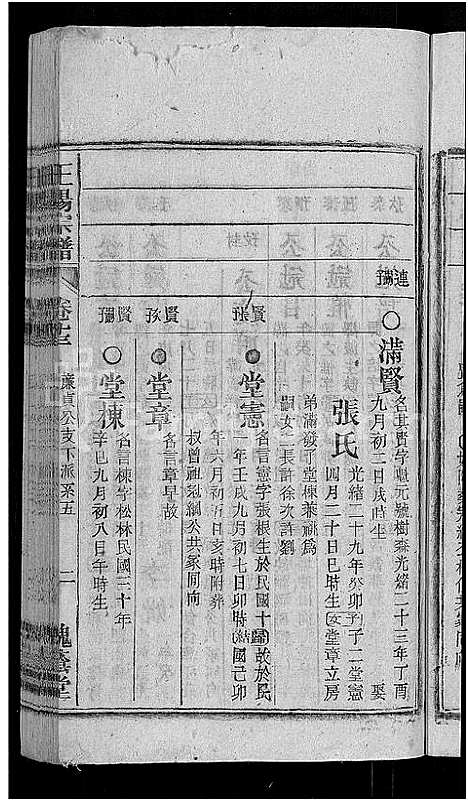 連彌
○滿賢
名其賢字繼元號樹森光緒二十三年丁酉
九月初二日戌時生 娶
張氏
光緒二十九年癸卯 子二堂憲
四月二十日巳時生 女堂章立房
弟滿發子堂棟兼祧爲
嗣女二長許徐次許劉
賢張
堂憲
名言憲字張根生於民國十 歸故於民
一年壬戌九月初七日卯時 結國己卯
年六月初五日亥時附葬
叔曾祖冠綢公共冢同向
賢孫
堂章
名言章早故
賢彌
○堂棟
名言棟字松林民國三十年
辛巳九月初八日午時生
王楊宗譜
卷十三
廉貞公支下派系五
二
槐蔭堂